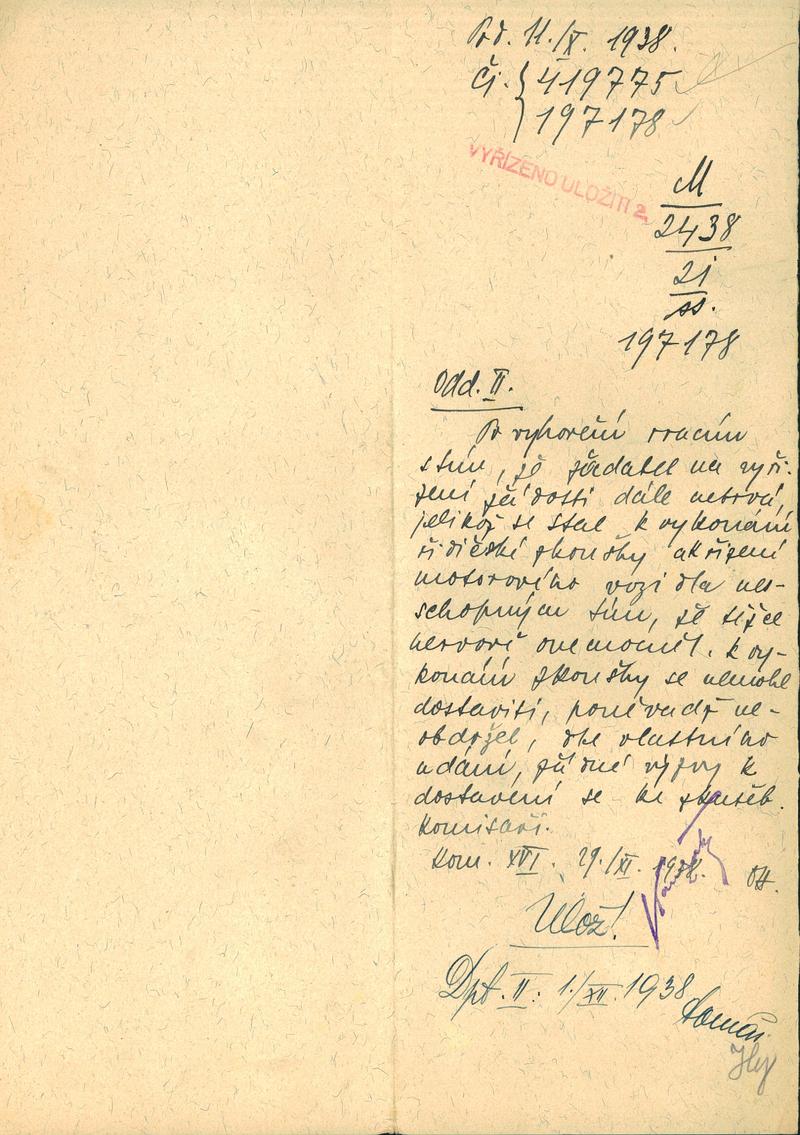 Pod. 11./X. 1938.
Čj. 419775
197178
VYŘÍZENO ULOŽITI
M
2438
21
ss.
197178
Odd. II.
Po vyhovění vracím
s tím, že žadatel na vyří-
zení žádosti dále netrvá,
jelikož se stal k vykonání
řidičské zkoušky a k řízení
motorového vozidla ne-
schopným tím, že těžce
nervově onemocněl. K vy-
konání zkoušky se nemohl
dostaviti, poněvadž ne-
obdržel, dle vlastního
udání, žádné výzvy k
dostavení se ke zkušeb.
komisaři.
Kom. XVI. 29./XI. 1938.
Ulož!
Dpt. II. 1./XII. 1938